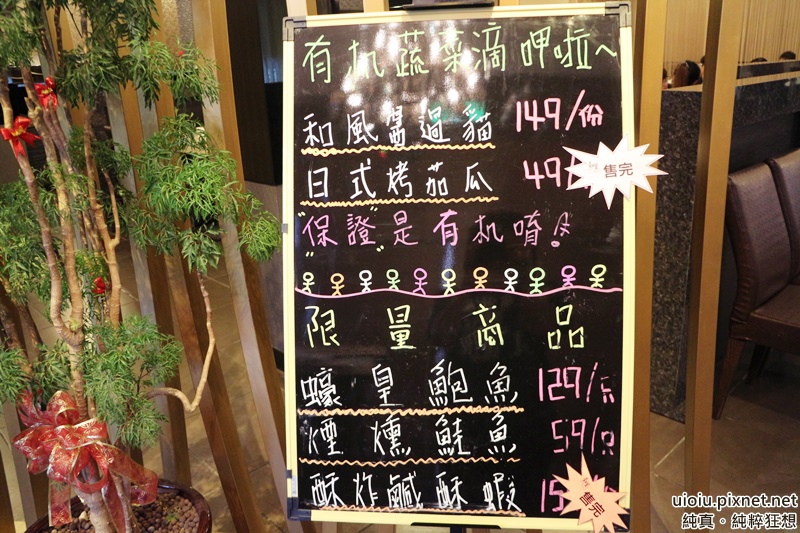 有机蔬菜滴呷啦~
和風醬過貓 149/份
日式烤茄瓜 49
售完
"保證"是有机唷!
限量商品
蠔皇鮑魚 129/
煙燻鮭魚 59/
酥炸鹹酥蝦 15
售完
uioiu.pixnet.net
純真。純粹狂想